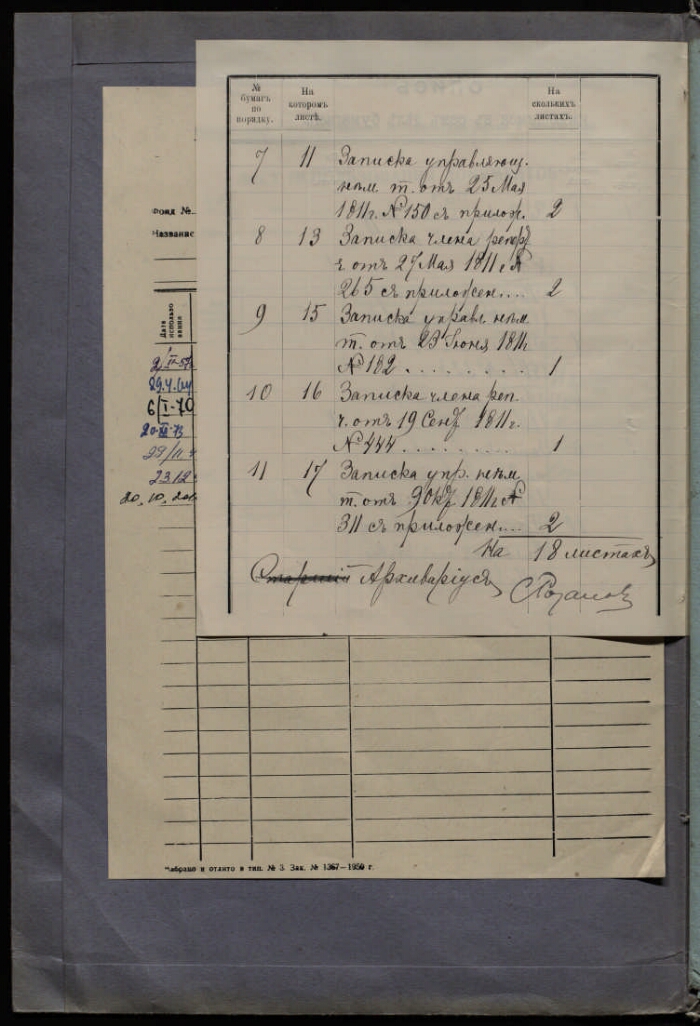 №
бумагъ
по
порядку.
На
которомъ
листѣ.
На
сколькихъ
листахъ.
7 11 Записка управляющ.
нѣм. т. отъ 25 Мая
1811г. № 150 съ прилож. 2
8 13 Записка члена реперт.
ч. отъ 27 Мая 1811 г. №
265 съ приложен.... 2
9 15 Записка управл. нѣм.
т. отъ 23 Іюня 1811г.
№ 182 . . . . . . . . 1
10 16 Записка члена реп.
ч. отъ 19 Сент. 1811г.
№ 444 . . . . . . . . 1
11 17 Записка упр. нѣм.
т. отъ 9 Окт. 1811г. №
311 съ приложен.... 2
На 18 листахъ
Старшій Архиваріусъ
Фонд №
Название
Дата
использо
вания
29.V.64
6/I-70
20.XI-73
29/11
2312
20.10.200
Набрано и отлито в тип. № 3. Зак. № 1367—1950 г.